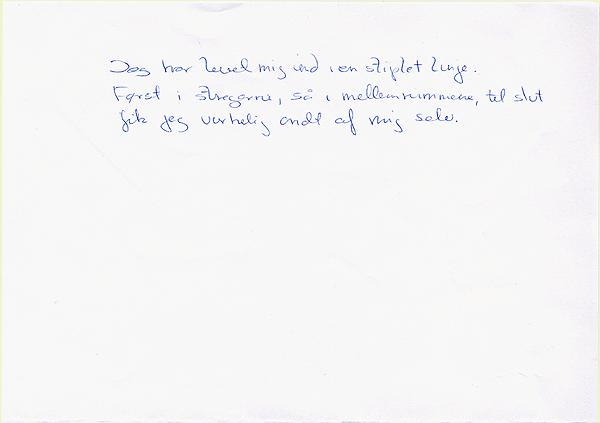 Jeg har levet mig ind i en stiplet linje.
Først i stregerne, så i mellemrummene, til slut
fik jeg virkelig ondt af mig selv.